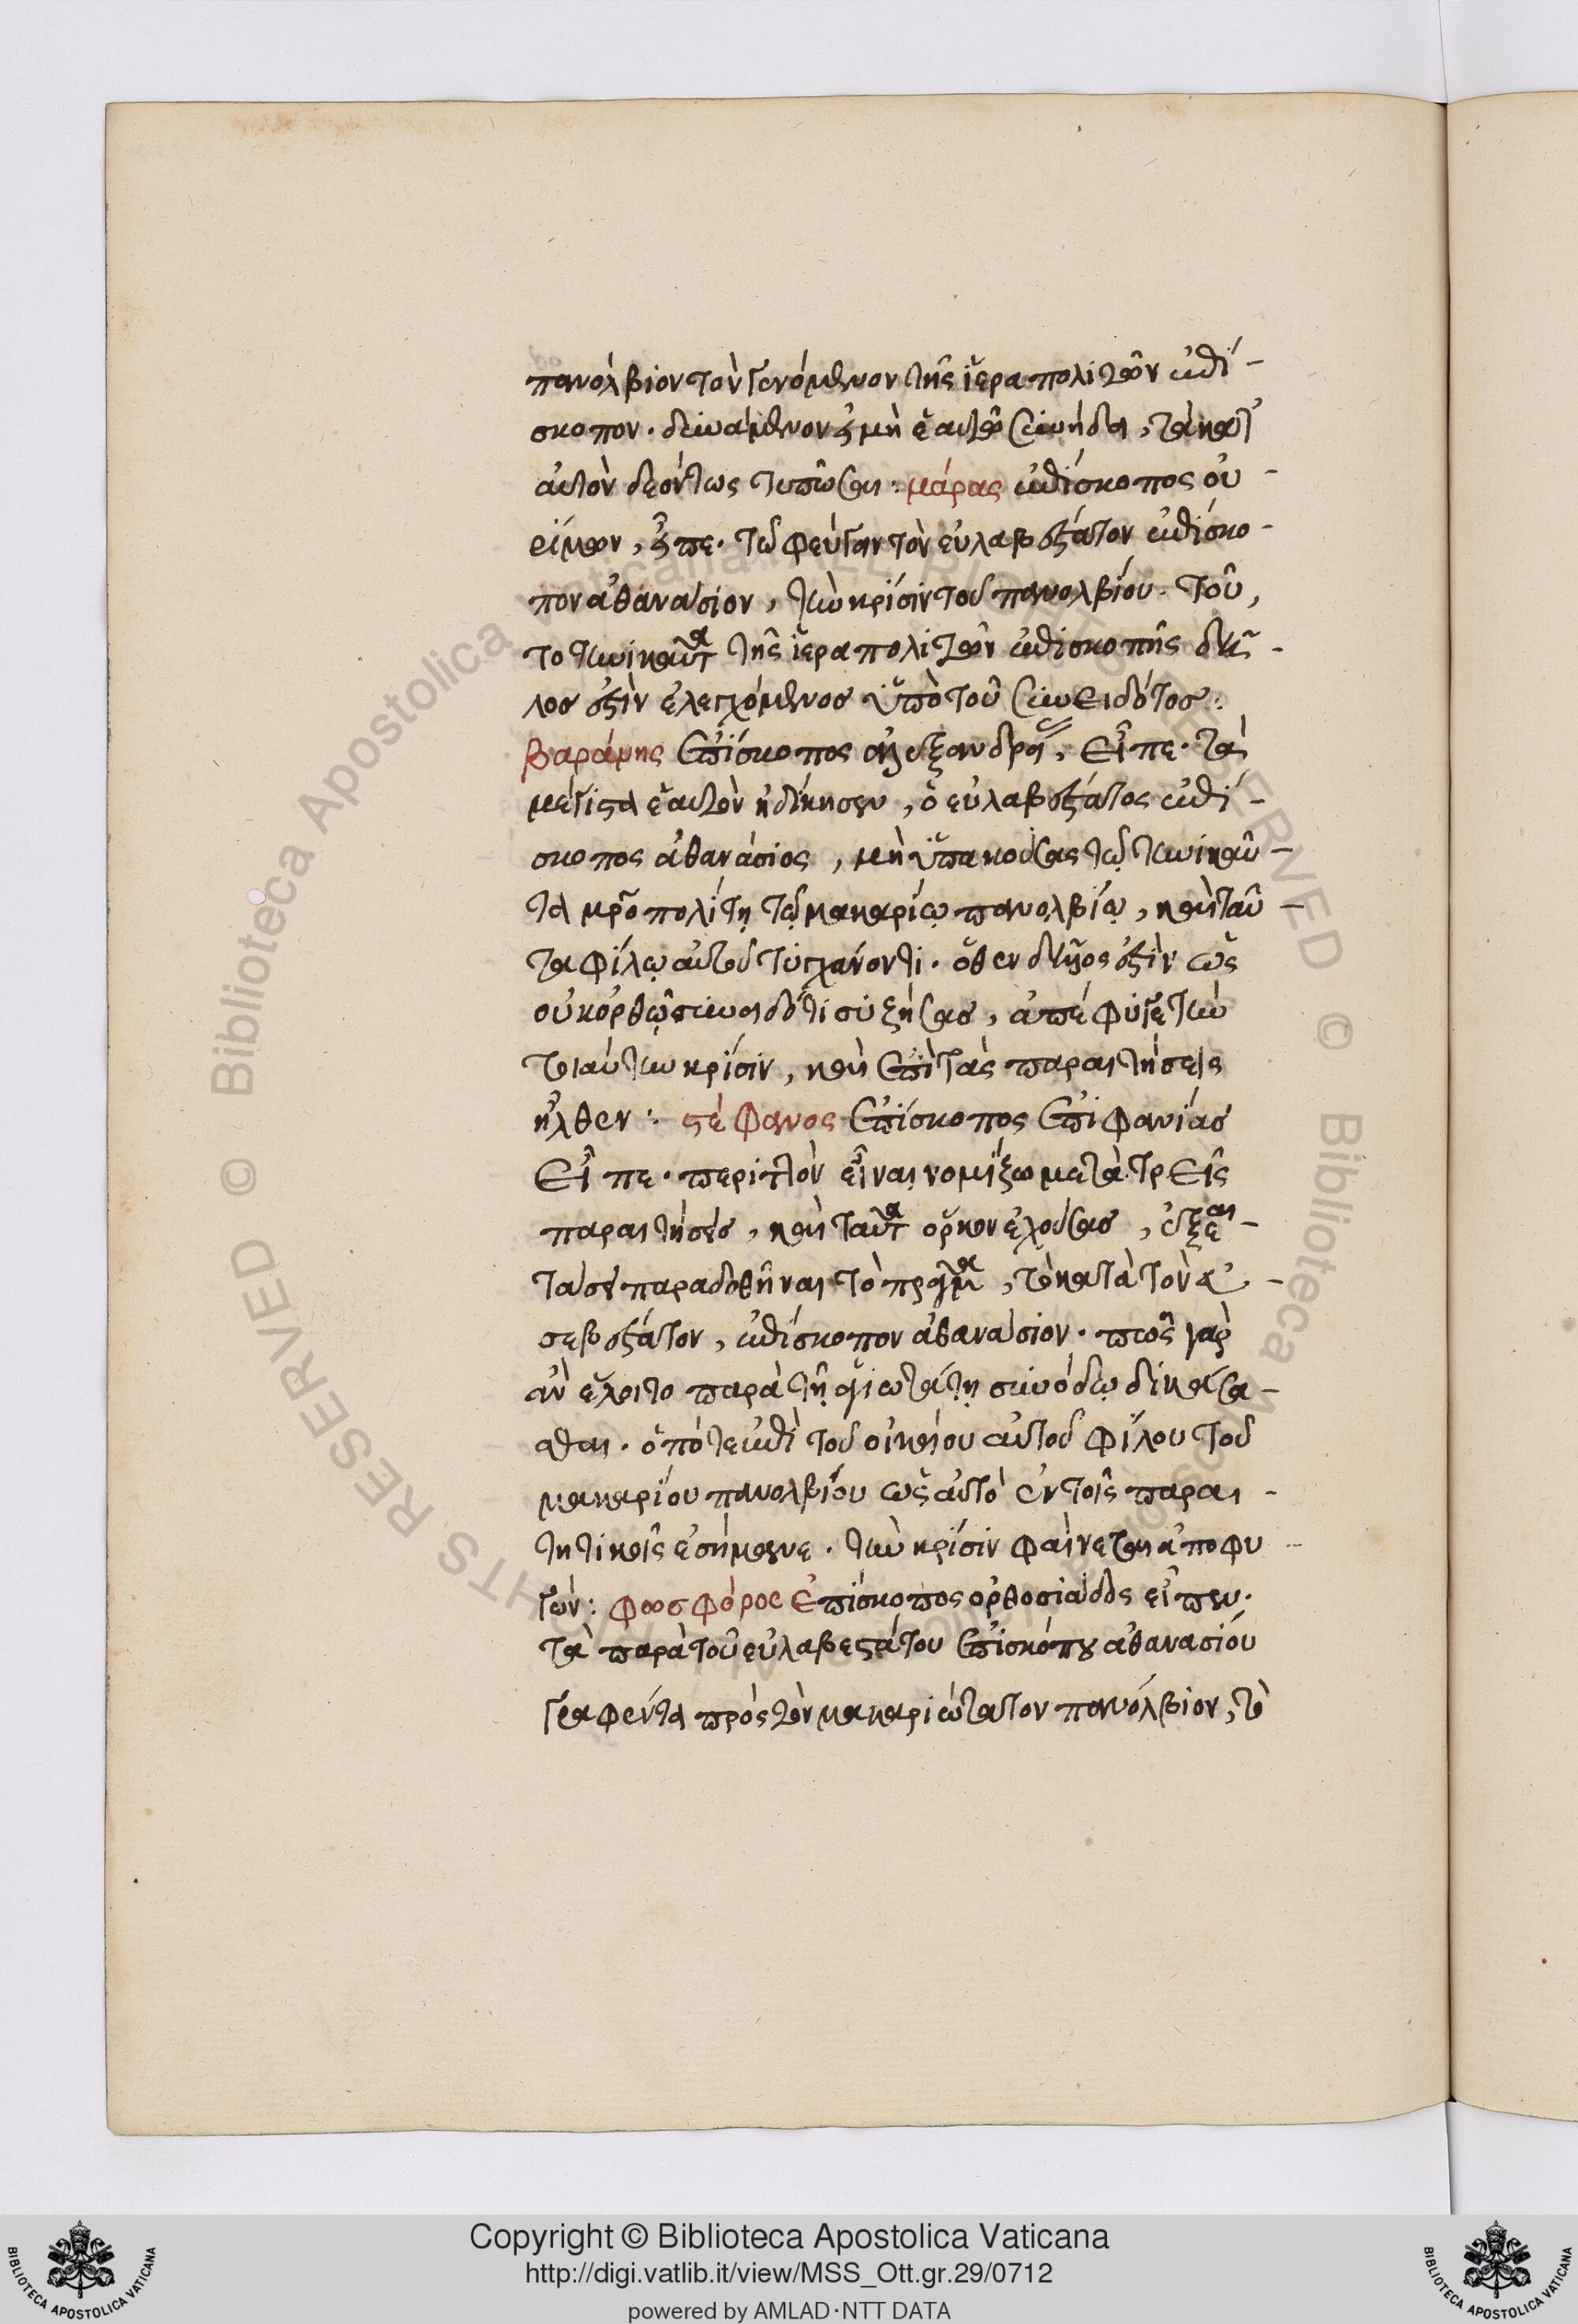 πανόλβιον τὸν γενόμενον τῆς ἱεραπολιτῶν ἐπί-
σκοπον. δυνάμενον εἰ μὴ ἑαυτῶ συνήδει, τὰ κατ'
αὐτὸν δεόντως τυπῶσαι: μάρας ἐπίσκοπος οὐ-
ρίμων, εἶπε. τῶ φεύγειν τὸν εὐλαβέστατον ἐπίσκο-
πον ἀθανάσιον, τὴν κρίσιν τοῦ πανολβίου. τοῦ,
τὸ τηνικαῦτα τῆς ἱεραπολιτῶν ἐπισκοπῆς δῆ-
λος ἐστὶν ἐλεγχόμενος ὑπὸ τοῦ συνειδότος:
βαράμης ἐπίσκοπος ἀλεξανδρείας, εἶπε. τὰ
μέγιστα ἑαυτὸν ἠδίκησεν, ὁ εὐλαβέστατος ἐπί-
σκοπος ἀθανάσιος, μὴ ὑπακούσας τῷ τηνικαῦ-
τα μροπολίτῃ τῷ μακαρίῳ πανολβίῳ, καὶ ταῦ-
τα φίλῳ αὐτοῦ τυγχάνοντι. ὅθεν δῆλος ἐστὶν ὡς
οὐκ ὀρθῷ συνειδότι συζήσας, ἀπέφυγε τὴν
τοιαύτην κρίσιν, καὶ ἐπὶ τὰς παραιτήσεις
ἦλθεν: στέφανος ἐπίσκοπος ἐπιφανίας
εἶπε. περιττὸν εἶναι νομίζω μετὰ τρεῖς
παραιτήσεις, καὶ ταῦτα ὅρκον ἐχούσας, ἐξε-
τάσει παραδοθῆναι τὸ πρᾶγμα, τὸ κατὰ τὸν εὐ-
σεβέστατον, ἐπίσκοπον ἀθανάσιον. πῶς γὰρ
ἂν ἕλοιτο παρὰ τῇ ἁγιωτάτῃ συνόδῳ δικάσα-
σθαι. ὁπότε ἐπὶ τοῦ οἰκείου αὐτοῦ φίλου τοῦ
μακαρίου πανολβίου ὡς αὐτὸ ἐν τοῖς παραι-
τητικοῖς ἐσήμανε. τὴν κρίσιν φαίνεται ἀποφυ-
γών: φωσφόρος ἐπίσκοπος ὀρθοσιάδος εἶπεν.
τὰ παρὰ τοῦ εὐλαβεστάτου ἐπισκόπου ἀθανασίου
γραφέντα πρὸς τὸν μακαριώτατον πανόλβιον, τὸ
Copyright © Biblioteca Apostolica Vaticana
http://digi.vatlib.it/view/MSS_Ott.gr.29/0712
powered by AMLAD·NTT DATA